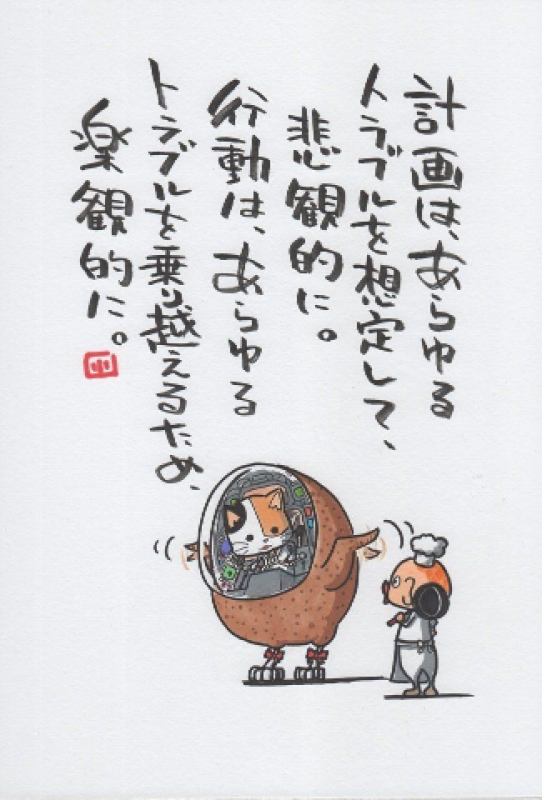 計画は、あらゆる
トラブルを想定して、
悲観的に。
行動は、あらゆる
トラブルを乗り越えるため、
楽観的に。